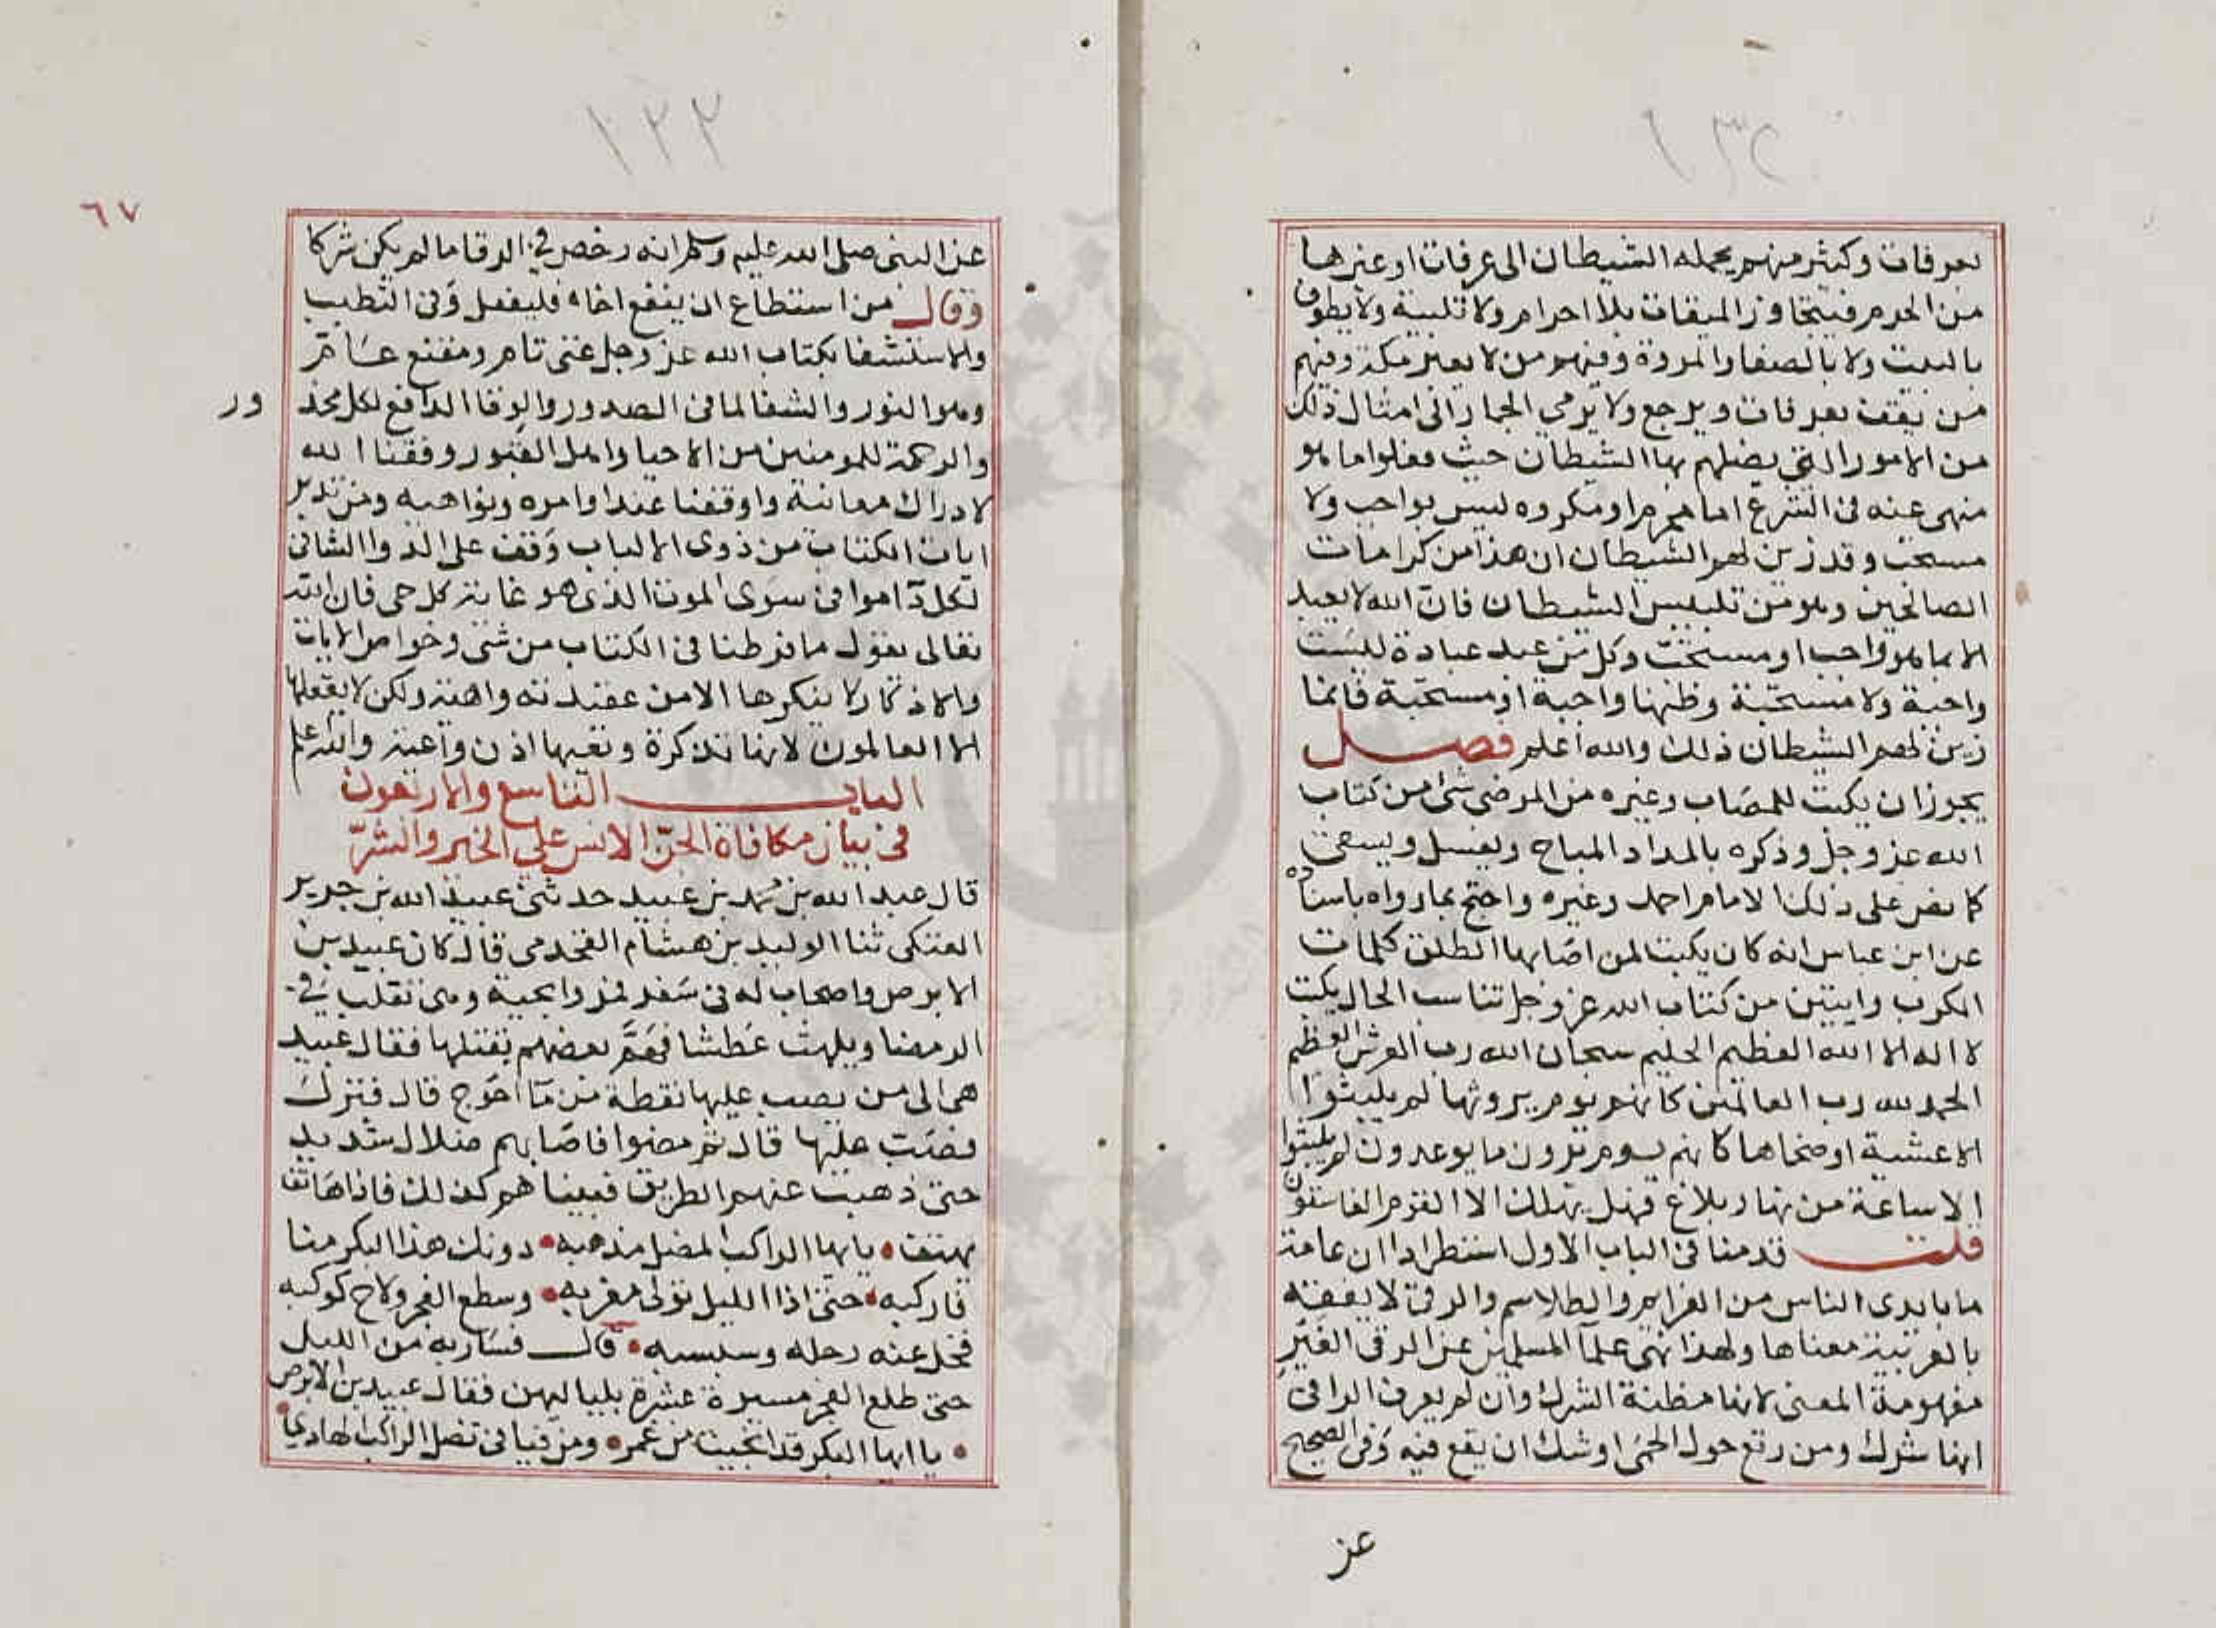 ١٣٢
بعرفات وكثير منهم يحمله الشيطان الى عرفات او غيرها
من الحرم فيتجاوز الميقات بلا احرام ولا تلبية ولا يطوف
بالبيت ولا بالصفا والمروة ومنهم من لا يعبر مكة ومنهم
من يقف بعرفات ويرجع ولا يرمي الجمار الى امثال ذلك
من الامور التي يضلهم بها الشيطان حيث فعلوا ما هو
منهى عنه في الشرع اما محرم او مكروه ليس بواجب ولا
مستحب وقد زين لهم الشيطان ان هذا من كرامات
الصالحين وهو من تلبيس الشيطان فان الله لا يعبد
الا بما هو واجب او مستحب وكل من عبد عبادة ليست
واجبة ولا مستحبة وظنها واجبة او مستحبة فانما
زين لهم الشيطان ذلك والله اعلم فصل
يجوز ان يكتب للمصاب وغيره من المرضى شئ من كتاب
الله عز وجل وذكره بالمداد المباح ويغسل ويسقى
كما نص على ذلك الامام احمد وغيره واحتج بما رواه باسناده
عن ابن عباس انه كان يكتب لمن اصابها الطلق كلمات
الكرب وايتين من كتاب الله عز وجل تناسب الحال يكتب
لا اله الا الله العظيم الحليم سبحان الله رب العرش العظيم
الحمد لله رب العالمين كانهم يوم يرونها لم يلبثوا
الا عشية او ضحاها كانهم يوم يرون ما يوعدون لم يلبثوا
الا ساعة من نهار بلاغ فهل يهلك الا القوم الفاسقون
قلت قدمنا في الباب الاول استطرادا ان عامة
ما بايدى الناس من العزايم والطلاسم والرقى لا يفقه
بالعربية معناها ولهذا نهى علمآ المسلمين عن الرقى الغير
مفهومة المعنى لانها مظنة الشرك وان لم يعرف الراقى
انها شرك ومن رتع حول الحمى اوشك ان يقع فيه وفى الصحيح
عن
١٣٣
٦٧
عن النبى صلى الله عليه وسلم انه رخص في الرقا ما لم يكن شركا
وقال من استطاع ان ينفع اخاه فليفعل وفى التطبب
والاستشفا بكتاب الله عز وجل غنى تام ومقنع عام
وهو النور والشفا لما فى الصدور والوقا الدافع لكل محذ ور
والرحمة للمومنين من الاحيا واهل القبور وفقنا الله
لادراك معانيه واوقفنا عند اوامره ونواهيه ومن تدبر
ايات الكتاب من ذوى الالباب وقف على الدوا الشافى
لكل دآ موا فى سوى الموت الذى هو غاية كل حى فان الله
تعالى يقول ما فرطنا فى الكتاب من شئ وخواص الايات
والاذكار لا ينكرها الا من عقيدته واهية ولكن لا يعقلها
الا العالمون لانها تذكرة وتعيها اذن واعية والله اعلم
الباب التاسع والاربعون
فى بيان مكافاة الجن الانس على الخير والشر
قال عبد الله بن محمد بن عبيد حدثنى عبيد الله بن جرير
العتكى ثنا الوليد بن هشام القحدمى قال كان عبيد بن
الابرص واصحاب له فى سفر فمروا بحية وهى تقلب في
الرمضا ويلهث عطشا فهم بعضهم بقتلها فقال عبيد
هى الى من يصب عليها نقطة من مآ احوج قال فنزل
فصب عليها قال ثم مضوا فاصابهم ضلال شديد
حتى ذهبت عنهم الطريق فبينا هم كذلك فاذا هاتف
يهتف يا ايها الراكب المضل مذهبه دونك هذا البكر منا
فاركبه حتى اذا الليل تولى مغربه وسطع الفجر ولاح كوكبه
فخل عنه رحله وسبسبه قال فسار به من الليل
حتى طلع الفجر مسيرة عشرة بلياليهن فقال عبيد بن الابرص
يا ايها البكر قد انجيت من غمر ومن فيافى تضل الراكب الهادى